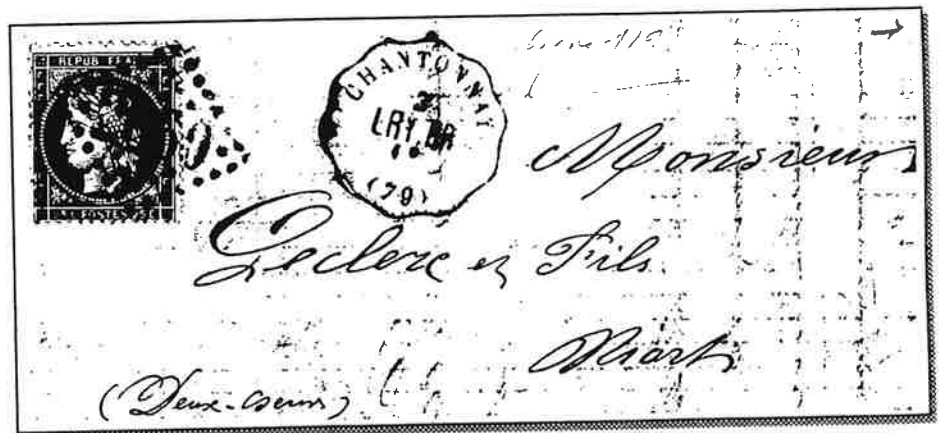 REPUB FRA
POSTES
CHANTONNAY
LRY BR
(79)
Monsieur
Leclerc et Fils
Niort
(Deux-Sevres)